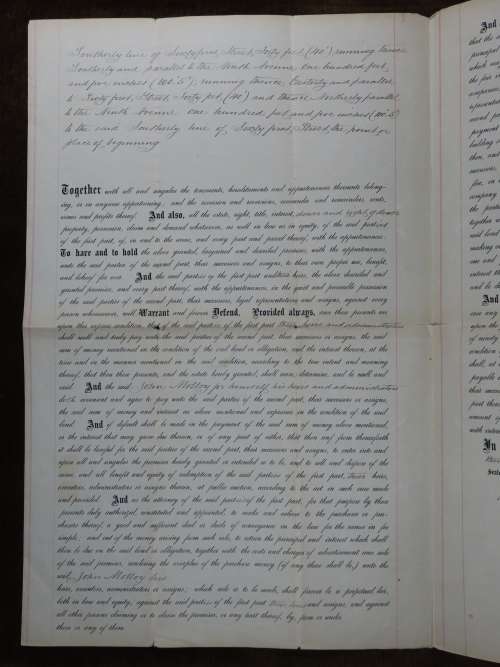 Southerly line of Sixty first Street, Forty feet (40') running thence
Southerly and parallel to the Ninth Avenue One hundred feet,
and five inches (100' 5"); running thence Easterly and parallel
to Sixty first Street Forty feet (40') and thence Northerly parallel
to the Ninth Avenue one hundred feet and five inches (100' 5")
to the said Southerly line of Sixty first Street, the point or
place of beginning
Together with all and singular the tenements, hereditaments and appurtenances thereunto belong-
ing, or in anywise appertaining, and the reversion and reversions, remainder and remainders, rents,
issues and profits thereof. And also, all the estate, right, title, interest, dower and right of dower
property, possession, claim and demand whatsoever, as well in law as in equity, of the said parties
of the first part, of, in and to the same, and every part and parcel thereof, with the appurtenances:
To have and to hold the above granted, bargained and described premises, with the appurtenances,
unto the said parties of the second part, their successors and assigns, to their own proper use, benefit,
and behoof for ever. And the said parties of the first part
the above described and
granted premises, and every part thereof, with the appurtenances, in the quiet and peaceable possession
of the said parties of the second part, their successors, legal representatives and assigns, against every
person whomsoever, will Warrant and forever Defend. Provided always, and these presents are
upon this express condition, that if the said parties of the first part their heirs and administrators
shall well and truly pay unto the said parties of the second part, their successors or assigns, the said
sum of money mentioned in the condition of the said bond or obligation, and the interest thereon, at the
time and in the manner mentioned in the said condition, according to the true intent and meaning
thereof, that then these presents, and the estate hereby granted, shall cease, determine, and be null and
void. And the said John Molloy for himself his heirs and administrators
doth covenant and agree to pay unto the said parties of the second part, their successors or assigns,
the said sum of money and interest as above mentioned and expressed in the condition of the said
bond. And if default shall be made in the payment of the said sum of money above mentioned,
or the interest that may grow due thereon, or of any part of either, that then and from thenceforth
it shall be lawful for the said parties of the second part, their successors and assigns, to enter into and
upon all and singular the premises hereby granted or intended so to be, and to sell and dispose of the
same, and all benefit and equity of redemption of the said parties of the first part, their heirs,
executors, administrators or assigns therein, at public auction, according to the act in such case made
and provided. And as the attorney of the said parties of the first part, for that purpose by these
presents duly authorized, constituted and appointed, to make and deliver to the purchaser or pur-
chasers thereof, a good and sufficient deed or deeds of conveyance in the law for the same in fee
simple; and out of the money arising from such sale, to retain the principal and interest which shall
then be due on the said bond or obligation, together with the costs and charges of advertisement and sale
of the said premises, rendering the overplus of the purchase money (if any there shall be,) unto the
said John Molloy his
heirs, executors, administrators or assigns; which sale so to be made, shall forever be a perpetual bar,
both in law and equity, against the said parties of the first part their heirs and assigns, and against
all other persons claiming or to claim the premises, or any part thereof, by, from or under
them or any of them